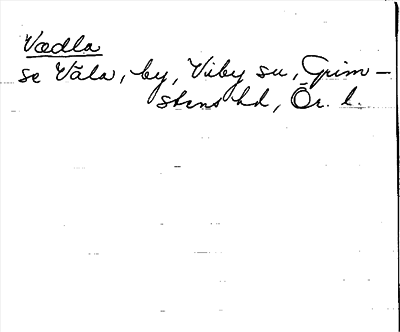 Vædla
se Våla, by, Viby sn, Grim-
stens hd, Ör. l.